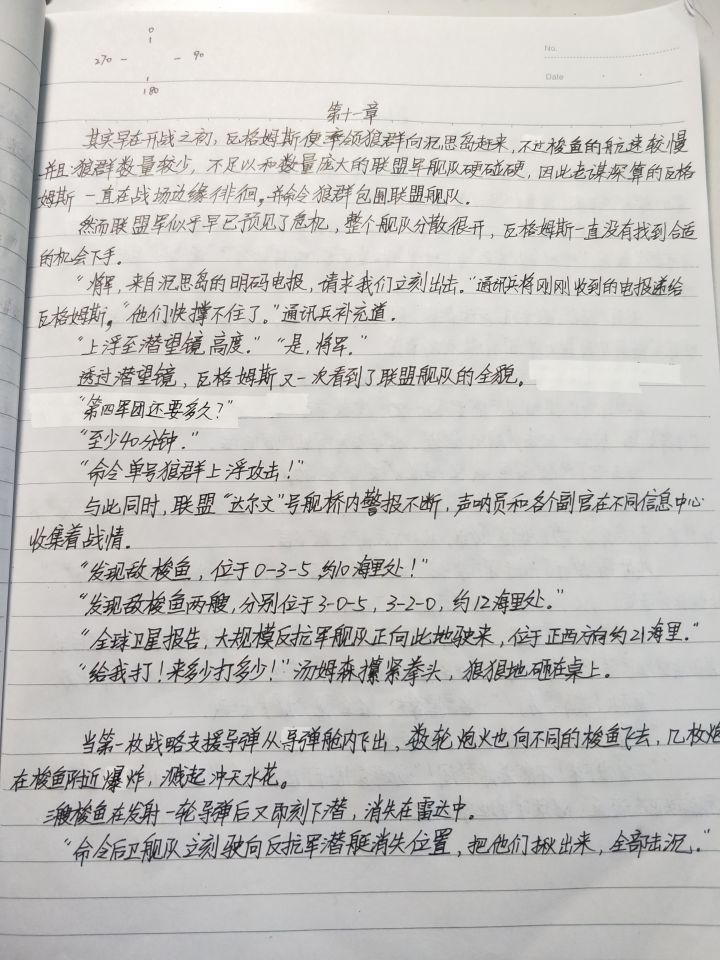 0
270 - - 90
180
No.
Date
第十一章
其实早在开战之初，瓦格姆斯便率领狼群向沉思岛赶来，不过梭鱼的航速较慢
并且狼群数量较少，不足以和数量庞大的联盟军舰队硬碰硬，因此老谋深算的瓦格
姆斯一直在战场边缘徘徊，并命令狼群包围联盟舰队．
然而联盟军似乎早已预见了危机，整个舰队分散很开，瓦格姆斯一直没有找到合适
的机会下手．
“将军，来自沉思岛的明码电报，请求我们立刻出击．”通讯兵将刚刚收到的电报递给
瓦格姆斯。“他们快撑不住了．”通讯兵补充道．
“上浮至潜望镜高度．”“是，将军．”
透过潜望镜，瓦格姆斯又一次看到了联盟舰队的全貌。
“第四军团还要多久？”
“至少40分钟．”
“命令单号狼群上浮攻击！”
与此同时，联盟“达尔文”号舰桥内警报不断，声呐员和各个副官在不同信息中心
收集着战情．
“发现敌梭鱼，位于0-3-5，约10海里处！”
“发现敌梭鱼两艘，分别位于3-0-5，3-2-0，约12海里处．”
“全球卫星报告，大规模反抗军舰队正向此地驶来，位于正西方向约21海里．”
“给我打！来多少打多少！”汤姆森攥紧拳头，狠狠地砸在桌上．
当第一枚战略支援导弹从导弹舱内飞出，数轮炮火也向不同的梭鱼飞去，几枚炮
在梭鱼附近爆炸，溅起冲天水花。
三艘梭鱼在发射一轮导弹后又即刻下潜，消失在雷达中．
“命令后卫舰队立刻驶向反抗军潜艇消失位置，把他们揪出来，全部击沉．”